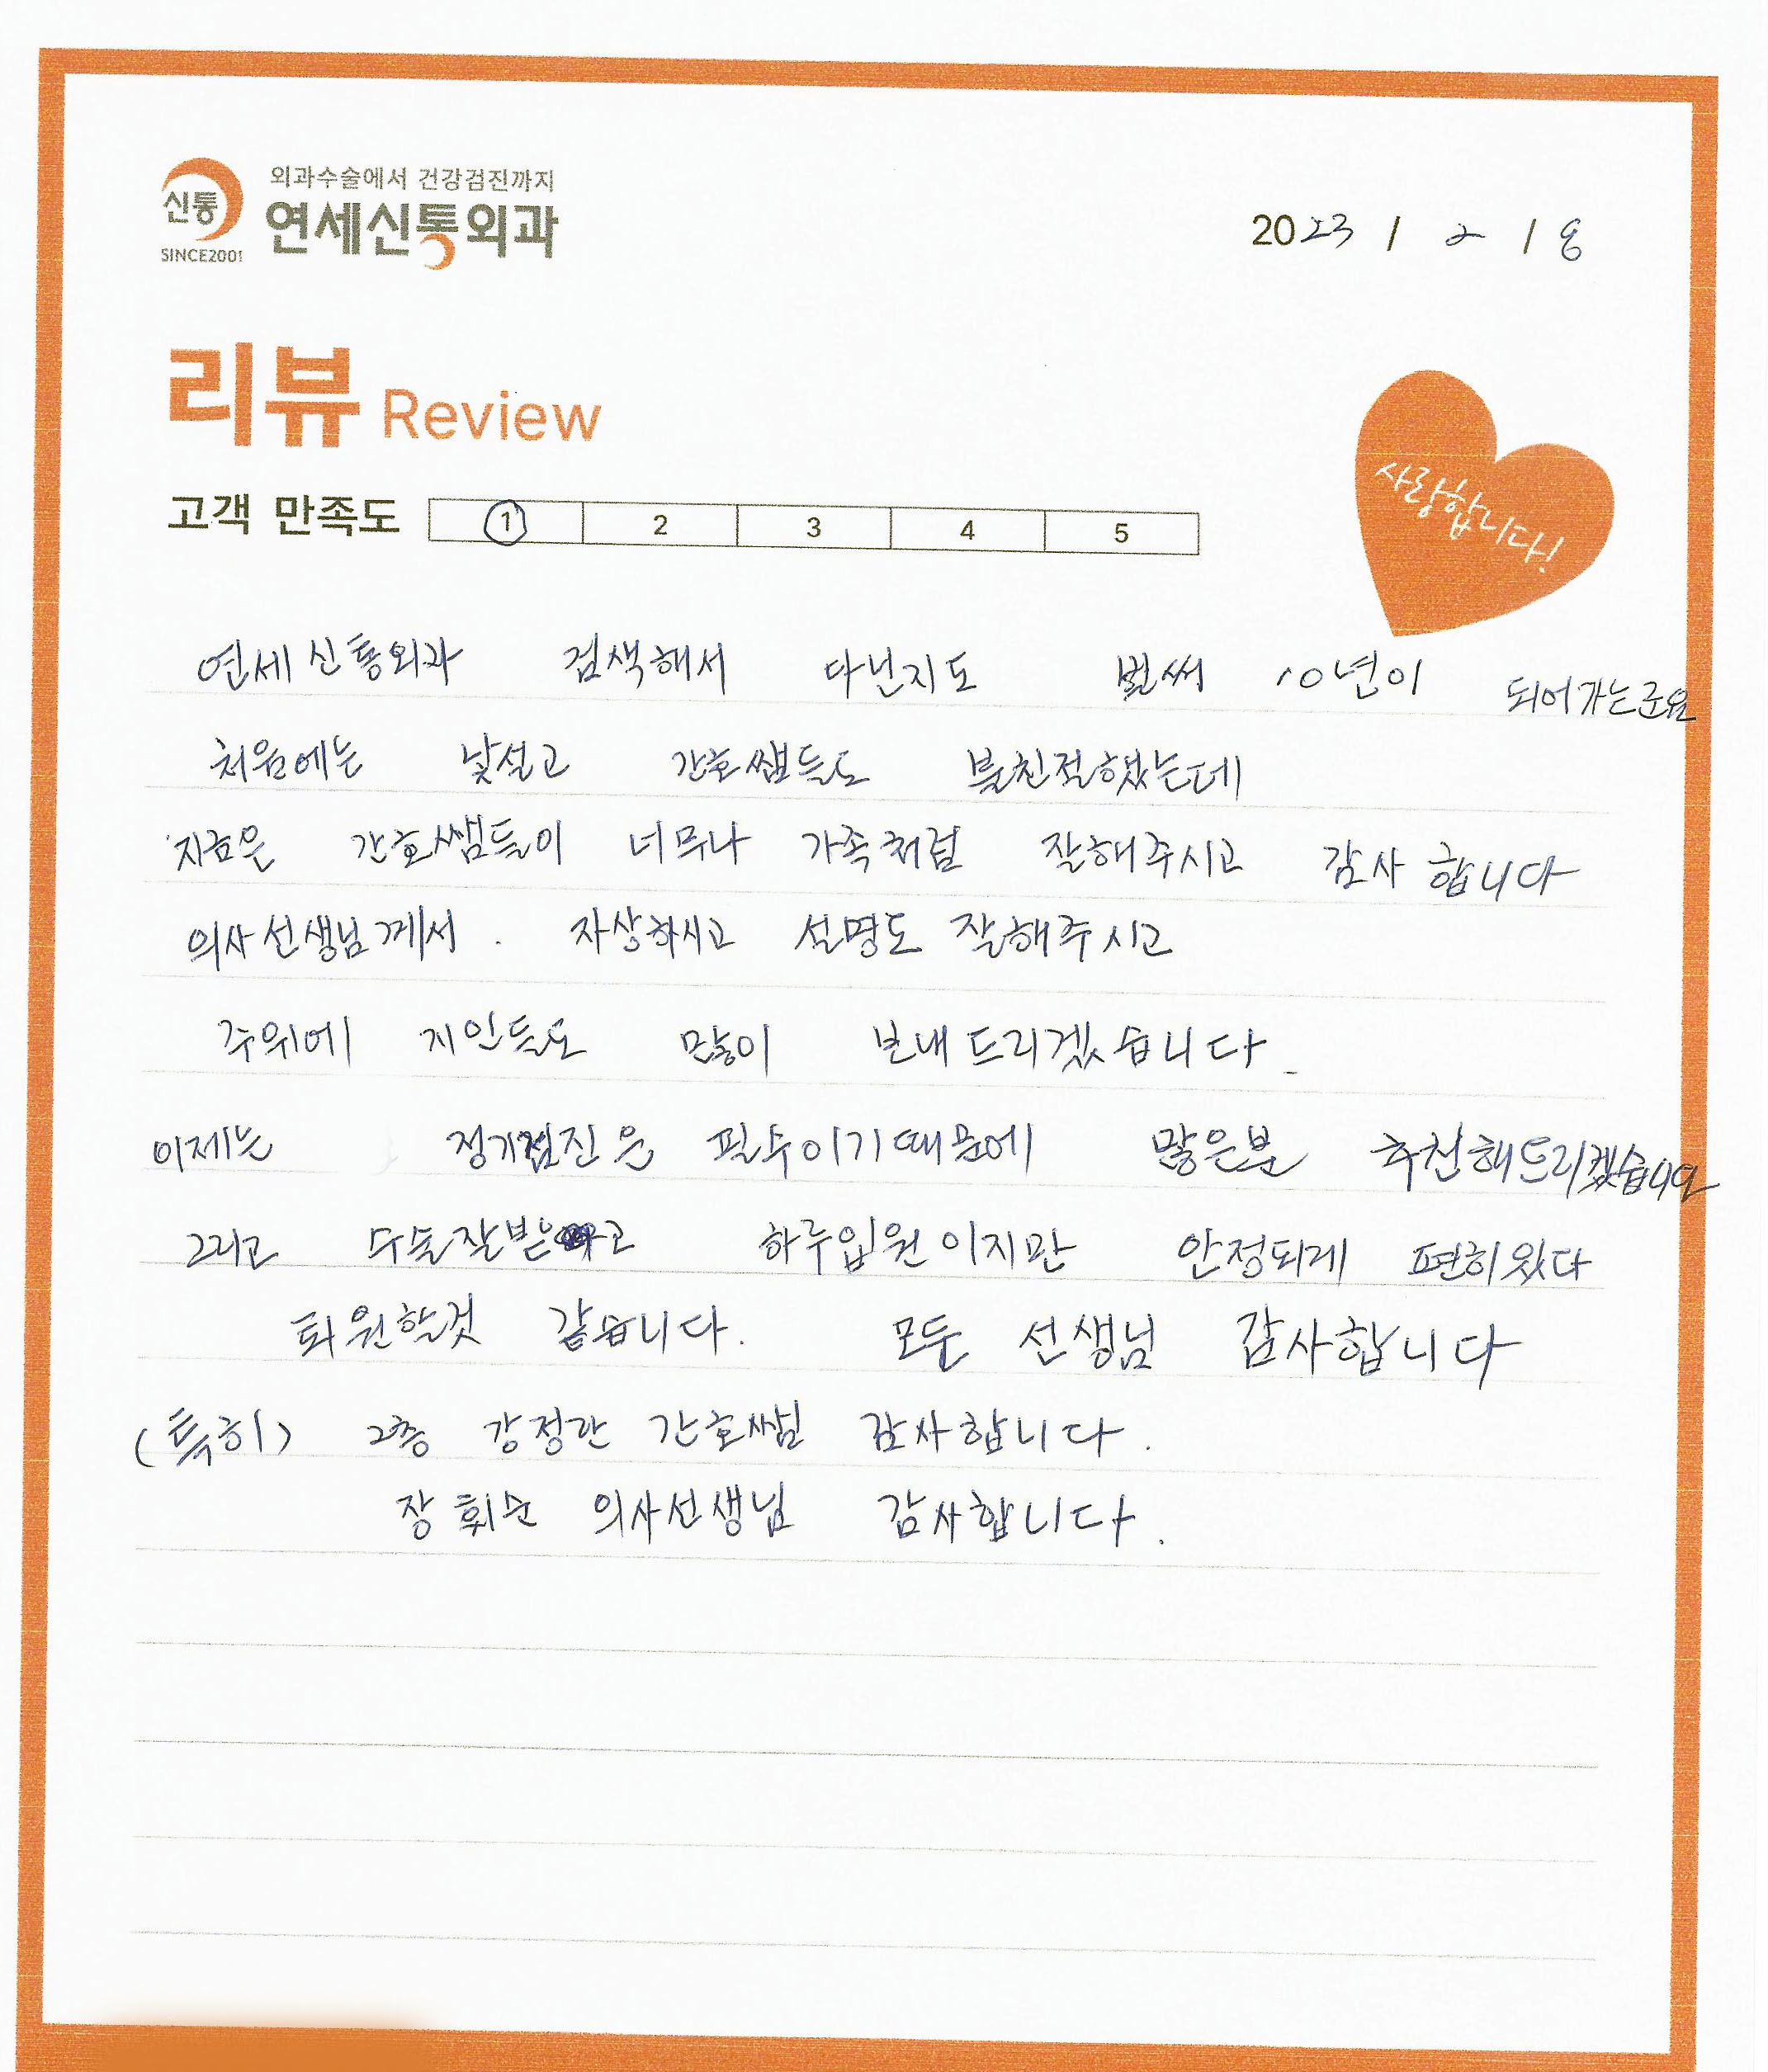 외과수술에서 건강검진까지
신통 연세신통외과
SINCE2001
2023 / 2 / 8
리뷰 Review
사랑합니다!
고객 만족도 1 2 3 4 5
연세신통외과 검색해서 다닌지도 벌써 10년이 되어가는군요
처음에는 낯설고 간호쌤들도 불친절했는데
지금은 간호쌤들이 너무나 가족처럼 잘해주시고 감사 합니다
의사선생님께서. 자상하시고 설명도 잘해주시고
주위에 지인들도 많이 보내드리겠습니다
이제는 정기검진은 필수이기때문에 많은분 추천해드리겠습니다
그리고 수술잘받고 하루입원이지만 안정되게 편히있다
퇴원할것 같습니다. 모두 선생님 감사합니다
(특히) 2층 강정란 간호쌤님 감사합니다.
장휘순 의사선생님 감사합니다.